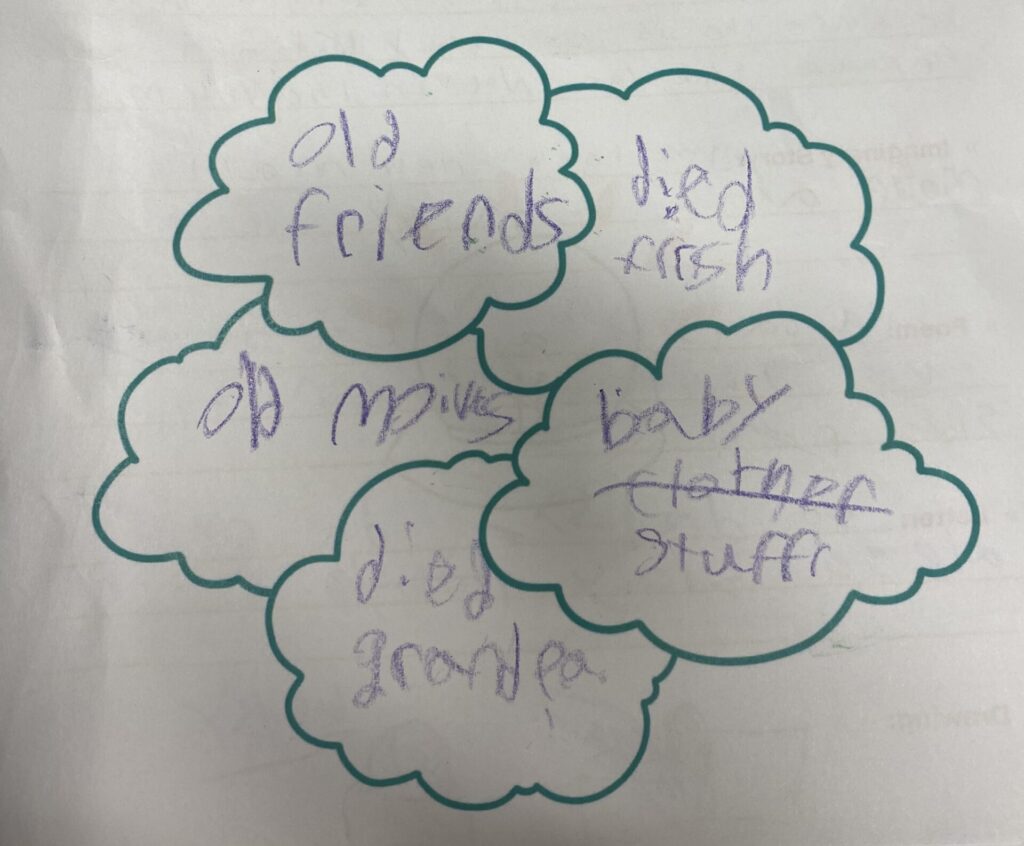 old
friends
died
frish
old moives
baby
clother
stuffr
died
grandpa